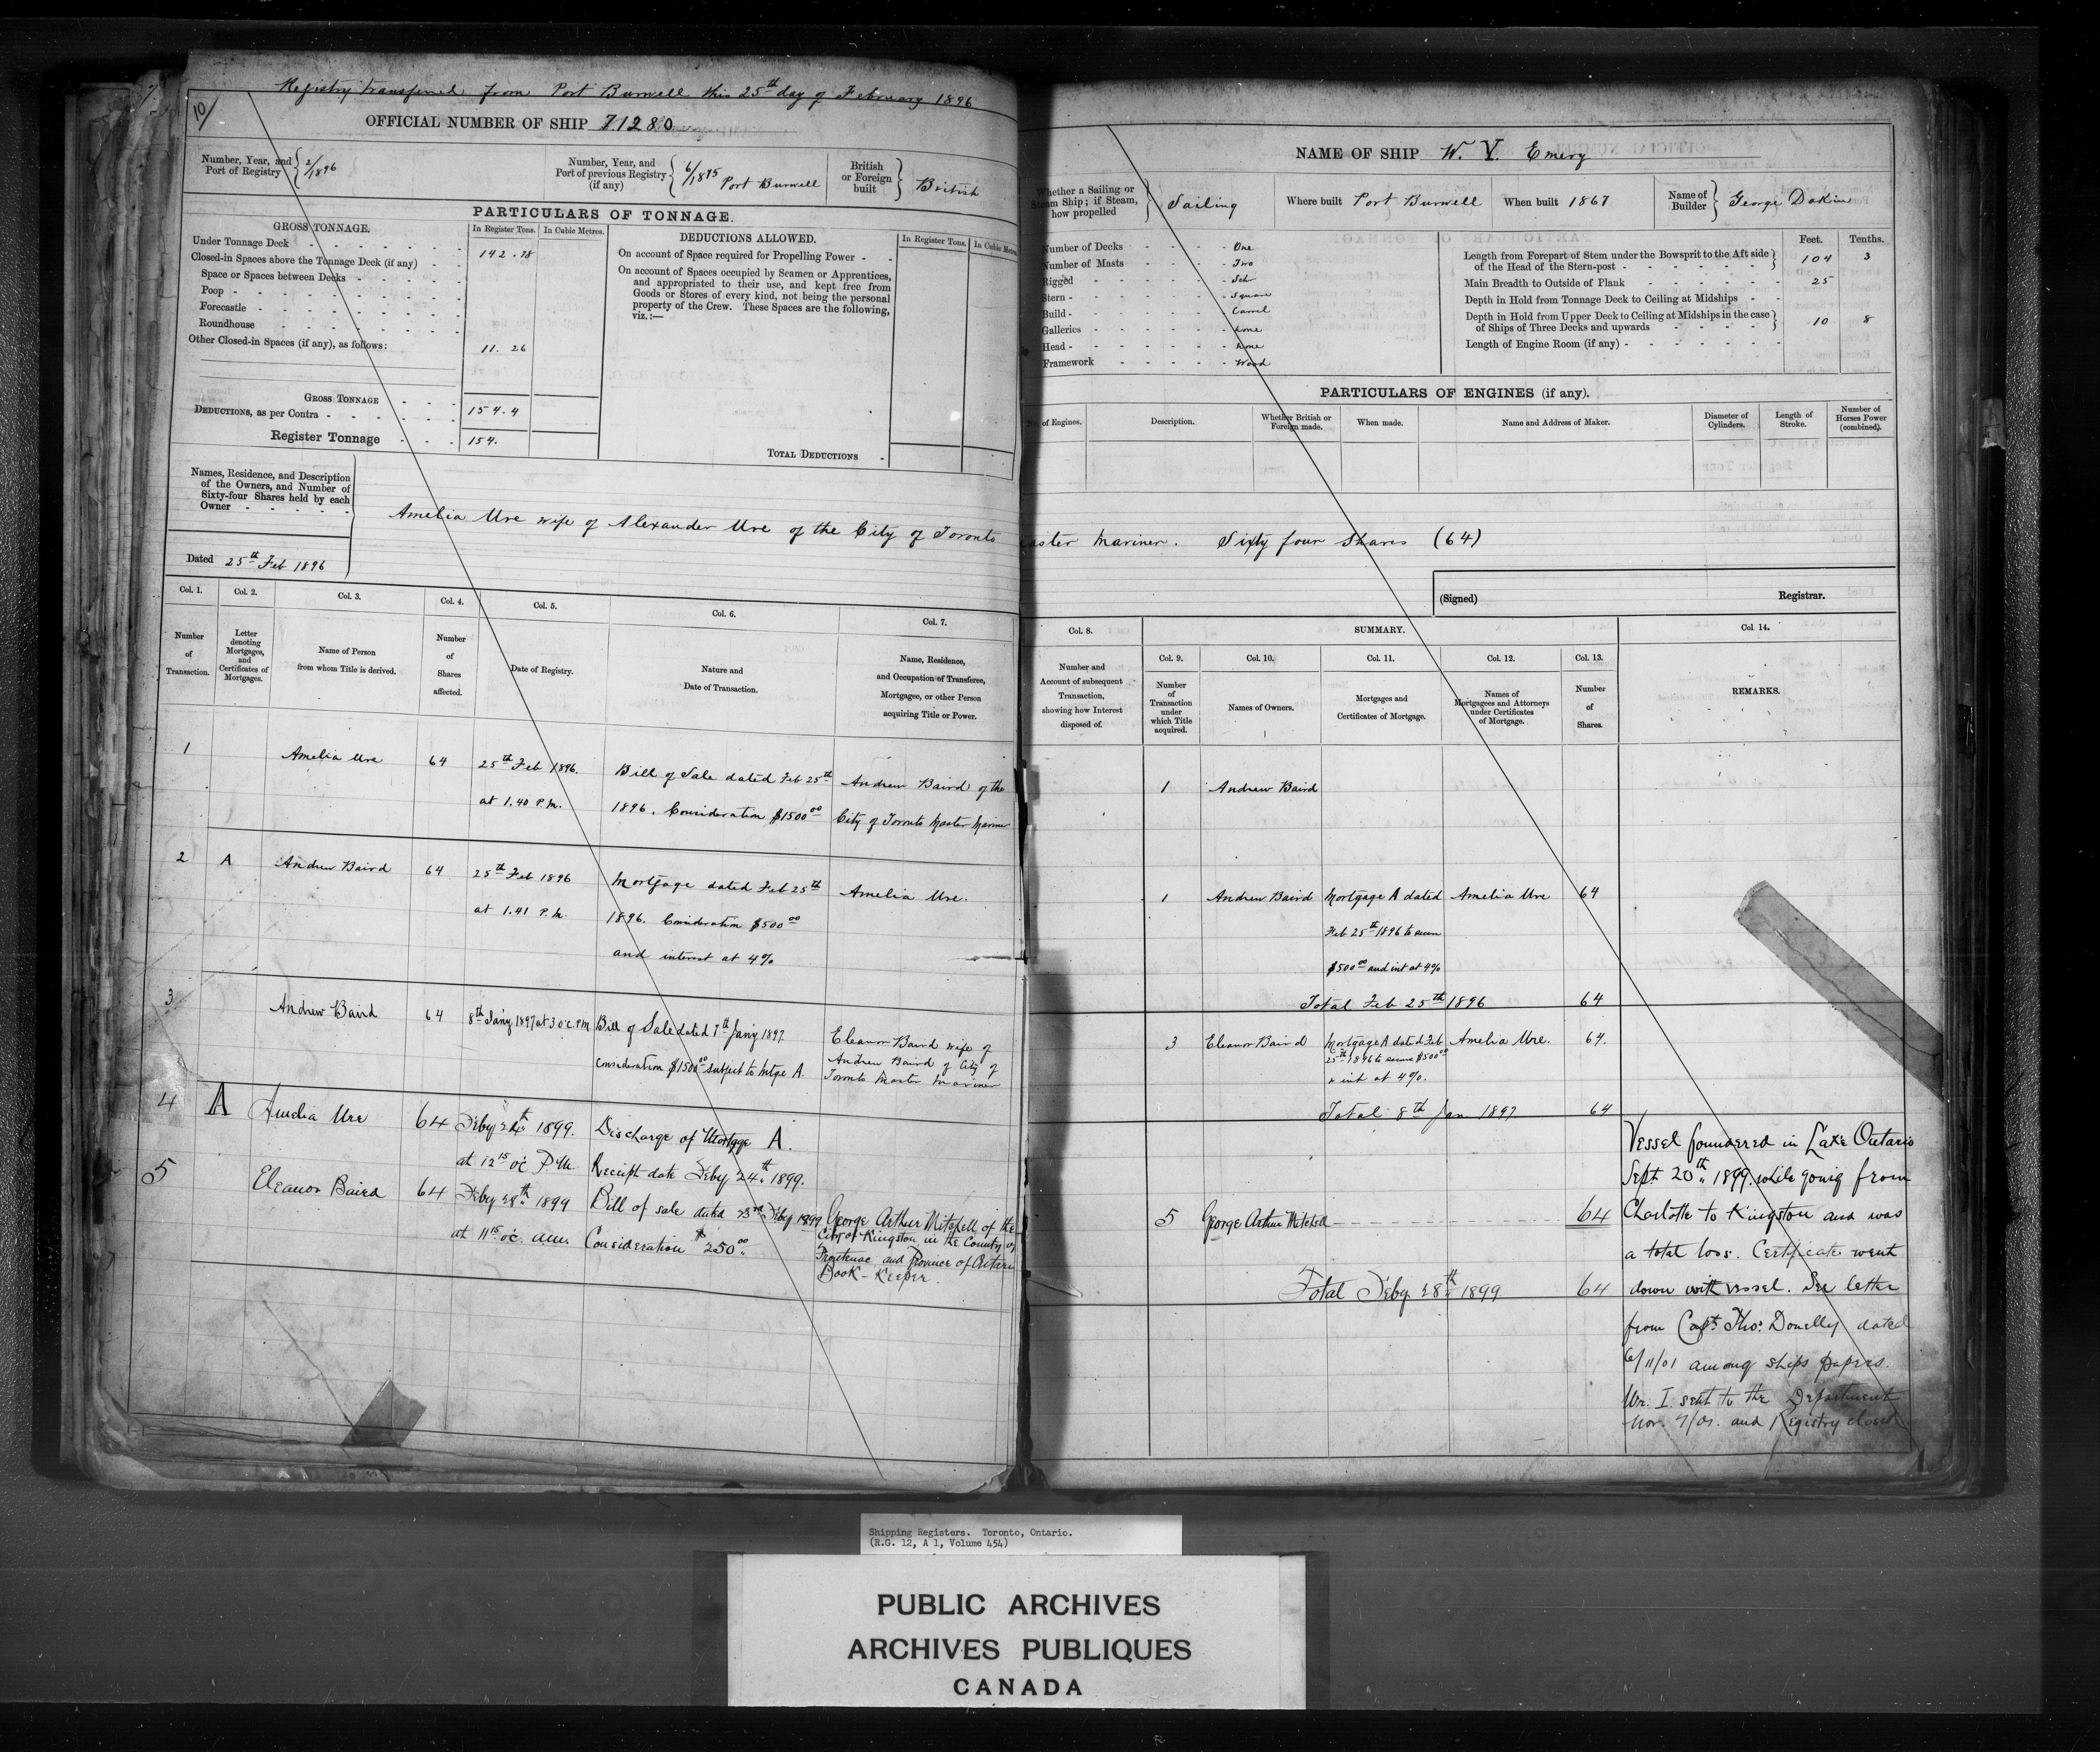 Registry transferred from Port Burwell this 25th day of February 1896
10/
OFFICIAL NUMBER OF SHIP 71280
Number, Year, and Port of Registry } 2/1896
Number, Year, and Port of previous Registry (if any) } 6/1875 Port Burwell
British or Foreign built } British
PARTICULARS OF TONNAGE.
GROSS TONNAGE.
In Register Tons. In Cubic Metres.
Under Tonnage Deck - 142.78
Closed-in Spaces above the Tonnage Deck (if any) -
Space or Spaces between Decks -
Poop -
Forecastle -
Roundhouse -
Other Closed-in Spaces (if any), as follows: 11.26
GROSS TONNAGE - 154.4
DEDUCTIONS, as per Contra -
Register Tonnage - 154.
DEDUCTIONS ALLOWED.
In Register Tons. In Cubic Metres.
On account of Space required for Propelling Power -
On account of Spaces occupied by Seamen or Apprentices,
and appropriated to their use, and kept free from
Goods or Stores of every kind, not being the personal
property of the Crew. These Spaces are the following,
viz.:—
TOTAL DEDUCTIONS -
Names, Residence, and Description
of the Owners, and Number of
Sixty-four Shares held by each
Owner -
Dated 25th Feb 1896
Amelia Ure wife of Alexander Ure of the City of Toronto
Col. 1. Col. 2. Col. 3. Col. 4. Col. 5. Col. 6. Col. 7.
Number of Transaction.
Letter denoting Mortgages, and Certificates of Mortgages.
Name of Person from whom Title is derived.
Number of Shares affected.
Date of Registry.
Nature and Date of Transaction.
Name, Residence, and Occupation of Transferee, Mortgagee, or other Person acquiring Title or Power.
1 Amelia Ure 64 25th Feb 1896. Bill of Sale dated Feb 25th Andrew Baird of the
at 1.40 P.M. 1896. Consideration $1500 00 City of Toronto Master Mariner
2 A Andrew Baird 64 25th Feb 1896 Mortgage dated Feb 25th Amelia Ure.
at 1.41 P.M. 1896. Consideration $500 00
and interest at 4%
3 Andrew Baird 64 8th Jany 1897 at 3 o'c. P.M. Bill of Sale dated 7th Jany 1897. Eleanor Baird wife of
Consideration $1500 00 subject to Mtge A. Andrew Baird of City of
Toronto Master Mariner
4 A Amelia Ure 64 Feby 24th 1899. Discharge of Mortgage A.
at 12 15 o'c P.M. Receipt date Feby 24th 1899.
5 Eleanor Baird 64 Feby 28th 1899 Bill of sale dated 23rd Feby 1899 George Arthur Mitchell of the
at 11 15 o'c. a.m. Consideration $250 00 City of Kingston in the County of
Frontenac and Province of Ontario
Book-Keeper.
NAME OF SHIP W. Y. Emery
Whether a Sailing or Steam Ship; if Steam, how propelled } Sailing
Where built Port Burwell When built 1867
Name of Builder } George Dakin
Number of Decks - One
Number of Masts - Two
Rigged - Schr
Stern - Square
Build - Carvel
Galleries - None
Head - None
Framework - Wood
Feet. Tenths.
Length from Forepart of Stem under the Bowsprit to the Aft side of the Head of the Stern-post - 104 3
Main Breadth to Outside of Plank - 25
Depth in Hold from Tonnage Deck to Ceiling at Midships -
Depth in Hold from Upper Deck to Ceiling at Midships in the case of Ships of Three Decks and upwards - 10 8
Length of Engine Room (if any) -
PARTICULARS OF ENGINES (if any).
No. of Engines. Description. Whether British or Foreign made. When made. Name and Address of Maker. Diameter of Cylinders. Length of Stroke. Number of Horses Power (combined).
Master Mariner. Sixty four Shares (64)
(Signed) Registrar.
Col. 8. SUMMARY. Col. 14.
Col. 9. Col. 10. Col. 11. Col. 12. Col. 13.
Number and Account of subsequent Transaction, showing how Interest disposed of.
Number of Transaction under which Title acquired.
Names of Owners.
Mortgages and Certificates of Mortgage.
Names of Mortgagees and Attorneys under Certificates of Mortgage.
Number of Shares.
REMARKS.
1 Andrew Baird
1 Andrew Baird Mortgage A dated Amelia Ure 64
Feb 25th 1896 to secure
$500 00 and int at 4%
Total Feb 25th 1896 64
3 Eleanor Baird Mortgage A dated Feb Amelia Ure. 64.
25th 1896 to secure $500 00
& int at 4%.
Total 8th Jan 1897 64
5 George Arthur Mitchell 64
Total Feby 28th 1899 64
Vessel foundered in Lake Ontario
Sept 20th 1899. while going from
Charlotte to Kingston and was
a total loss. Certificate went
down with vessel. See letter
from Capt. Thos. Donelly dated
6/11/01 among ships papers.
Wr. I. sent to the Department
Nov. 7/01. and Registry closed
Shipping Registers. Toronto, Ontario.
(R.G. 12, A 1, Volume 454)
PUBLIC ARCHIVES
ARCHIVES PUBLIQUES
CANADA